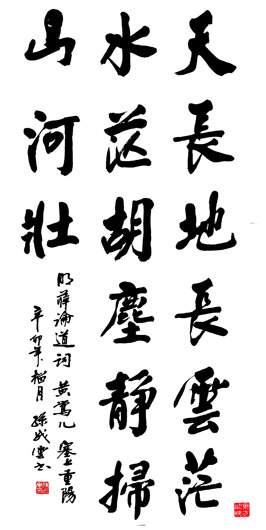 天長地長雲茫
水茫胡塵靜掃
山河壯
明薛論道詞黃鶯儿塞上重陽
辛卯年榴月孫成雲書